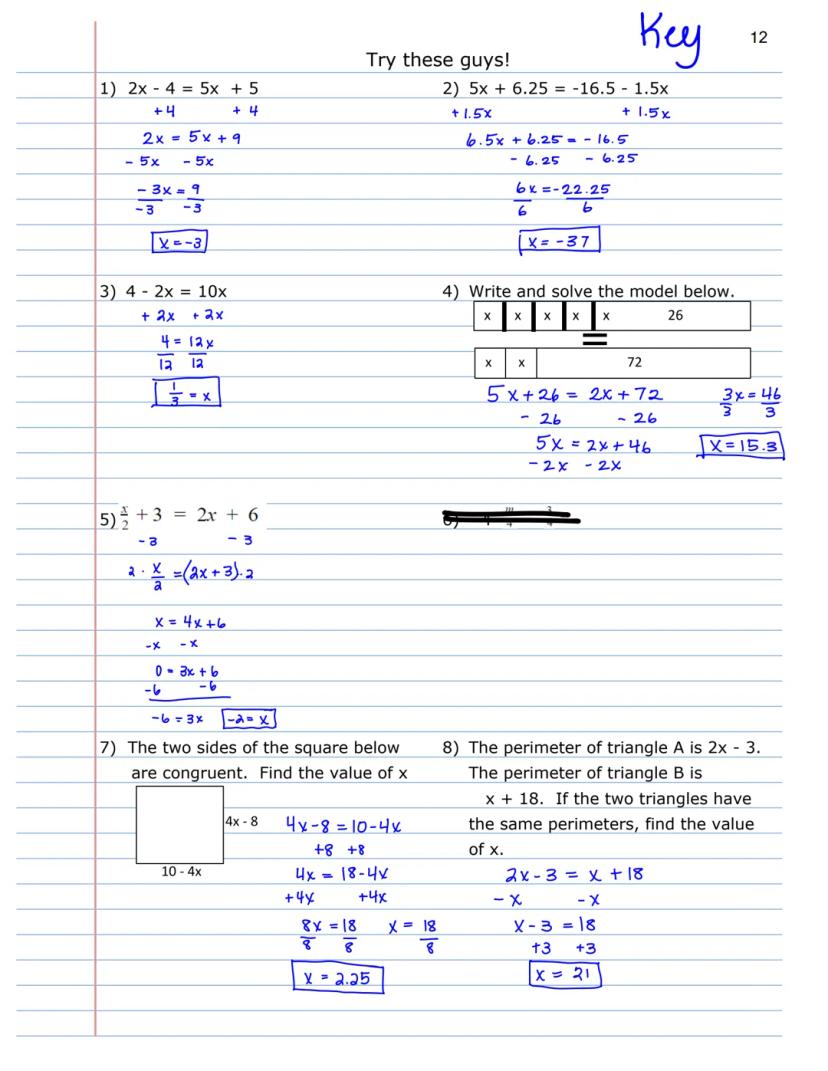 Key
12
Try these guys!
1) 2x - 4 = 5x + 5
+4 + 4
2x = 5x + 9
- 5x - 5x
- 3x = 9
-3 -3
x = -3
2) 5x + 6.25 = -16.5 - 1.5x
+ 1.5x + 1.5x
6.5x + 6.25 = - 16.5
- 6.25 - 6.25
6x = -22.25
6 6
x = -37
3) 4 - 2x = 10x
+ 2x + 2x
4 = 12x
12 12
1/3 = x
4) Write and solve the model below.
x x x x x 26
=
x x 72
5x + 26 = 2x + 72
- 26 - 26
5x = 2x + 46
- 2x - 2x
3x = 46
3 3
x = 15.3
5) x/2 + 3 = 2x + 6
- 3 - 3
2 · x/2 = (2x + 3) · 2
x = 4x + 6
-x -x
0 = 3x + 6
-6 -6
-6 = 3x -2 = x
7) The two sides of the square below
are congruent. Find the value of x
4x - 8
10 - 4x
4x - 8 = 10 - 4x
+8 +8
4x = 18 - 4x
+4x +4x
8x = 18 x = 18
8 8 8
x = 2.25
8) The perimeter of triangle A is 2x - 3.
The perimeter of triangle B is
x + 18. If the two triangles have
the same perimeters, find the value
of x.
2x - 3 = x + 18
- x - x
x - 3 = 18
+3 +3
x = 21